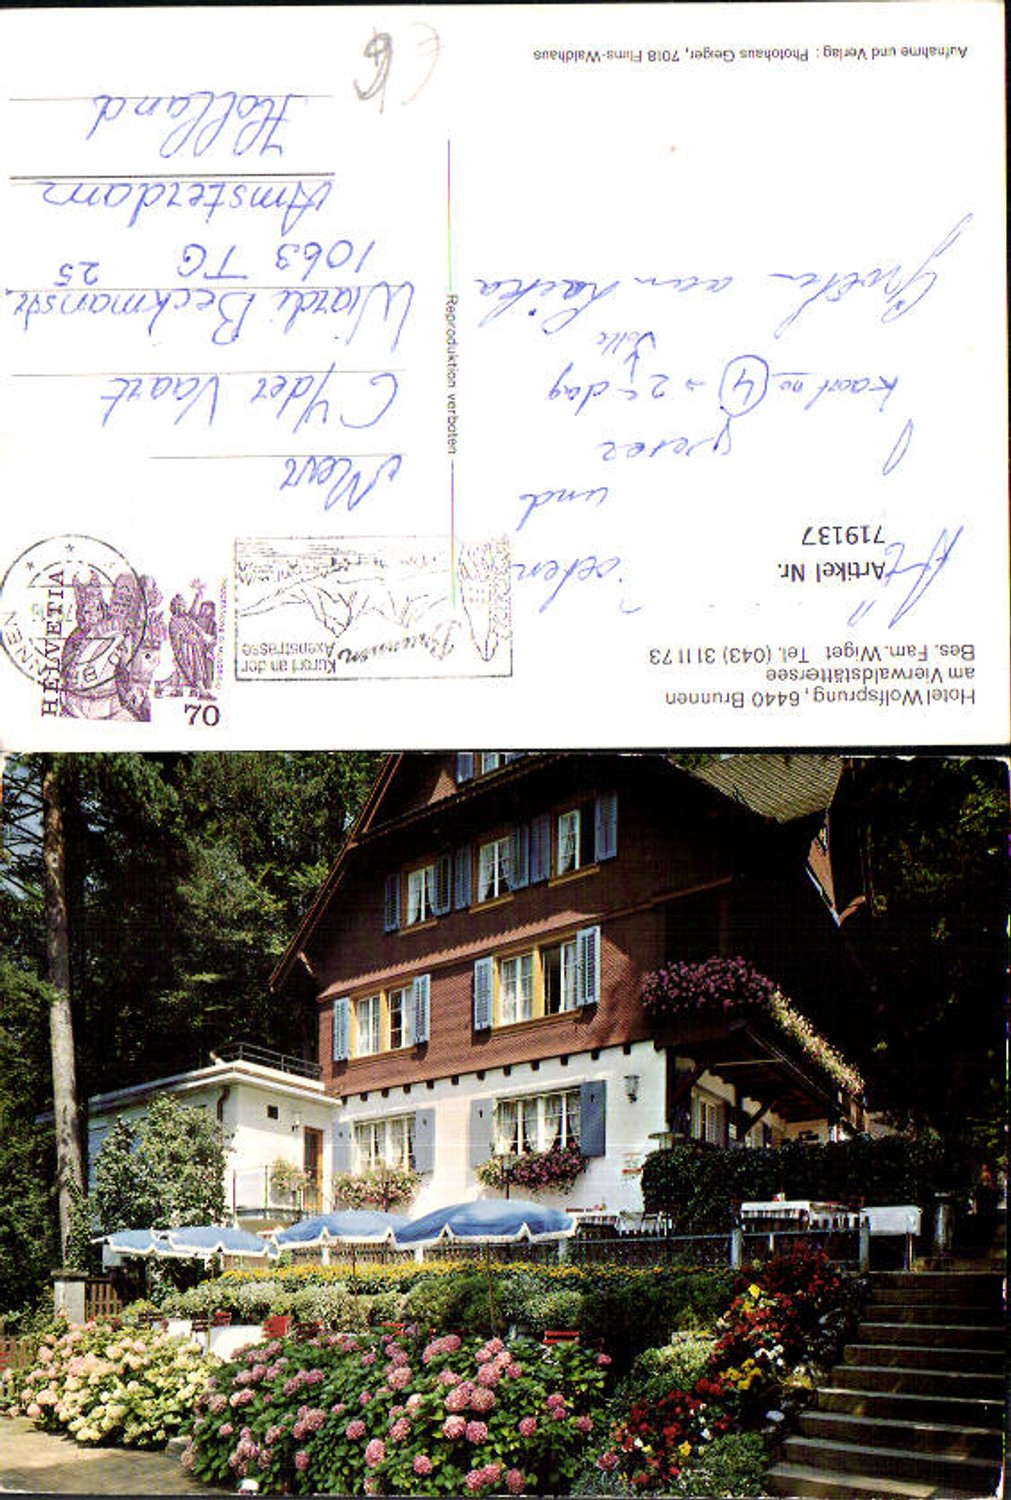 Hotel Wolfsprung, 6440 Brunnen
am Vierwaldstättersee
Bes. Fam. Wiget Tel. (043) 31 11 73
Artikel Nr.
719137
und
kaart no 4 = 2e dag
volle
Groeten aan
Aufnahme und Verlag: Photohaus Geiger, 7018 Flims-Waldhaus
Reproduktion verboten
Kurort an der
Axenstrasse
Brunnen
HELVETIA
70
Mevr
C v/der Vaart
Wiardi Beckmanstr.
25
1063 TG
Amsterdam
Holland